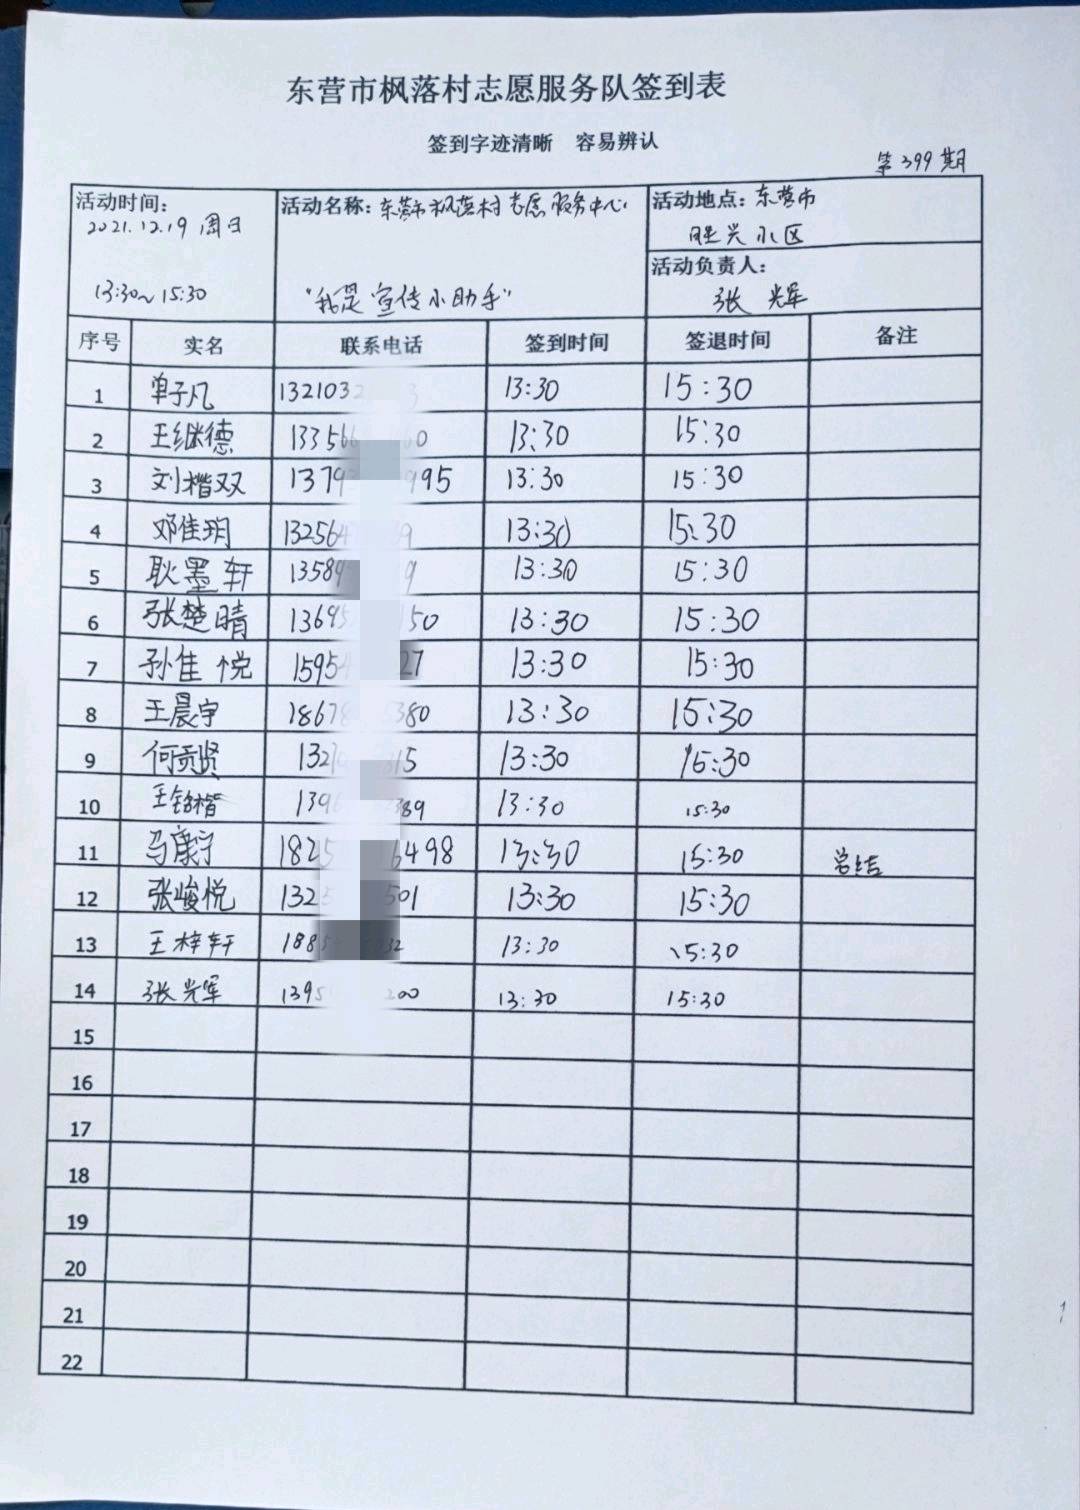 东营市枫落村志愿服务队签到表
签到字迹清晰 容易辨认
第399期
活动时间: 2021.12.19 周日
13:30~15:30
活动名称: 东营市枫落村志愿服务中心
"我是宣传小助手"
活动地点: 东营市
胜兴小区
活动负责人:
张光军
序号 实名 联系电话 签到时间 签退时间 备注
1 单子凡 1321032 3 13:30 15:30
2 王继德 133566 60 13:30 15:30
3 刘楷双 1379 995 13:30 15:30
4 邓佳玥 132564 89 13:30 15:30
5 耿墨轩 13589 9 13:30 15:30
6 张楚晴 13695 150 13:30 15:30
7 孙佳悦 15954 27 13:30 15:30
8 王晨宇 18678 380 13:30 15:30
9 何贡贤 132 315 13:30 15:30
10 王铭楷 139 389 13:30 15:30
11 马康宁 1825 6498 13:30 15:30 总结
12 张峻悦 132 501 13:30 15:30
13 王梓轩 188 32 13:30 15:30
14 张光军 1395 200 13:30 15:30
15
16
17
18
19
20
21
22